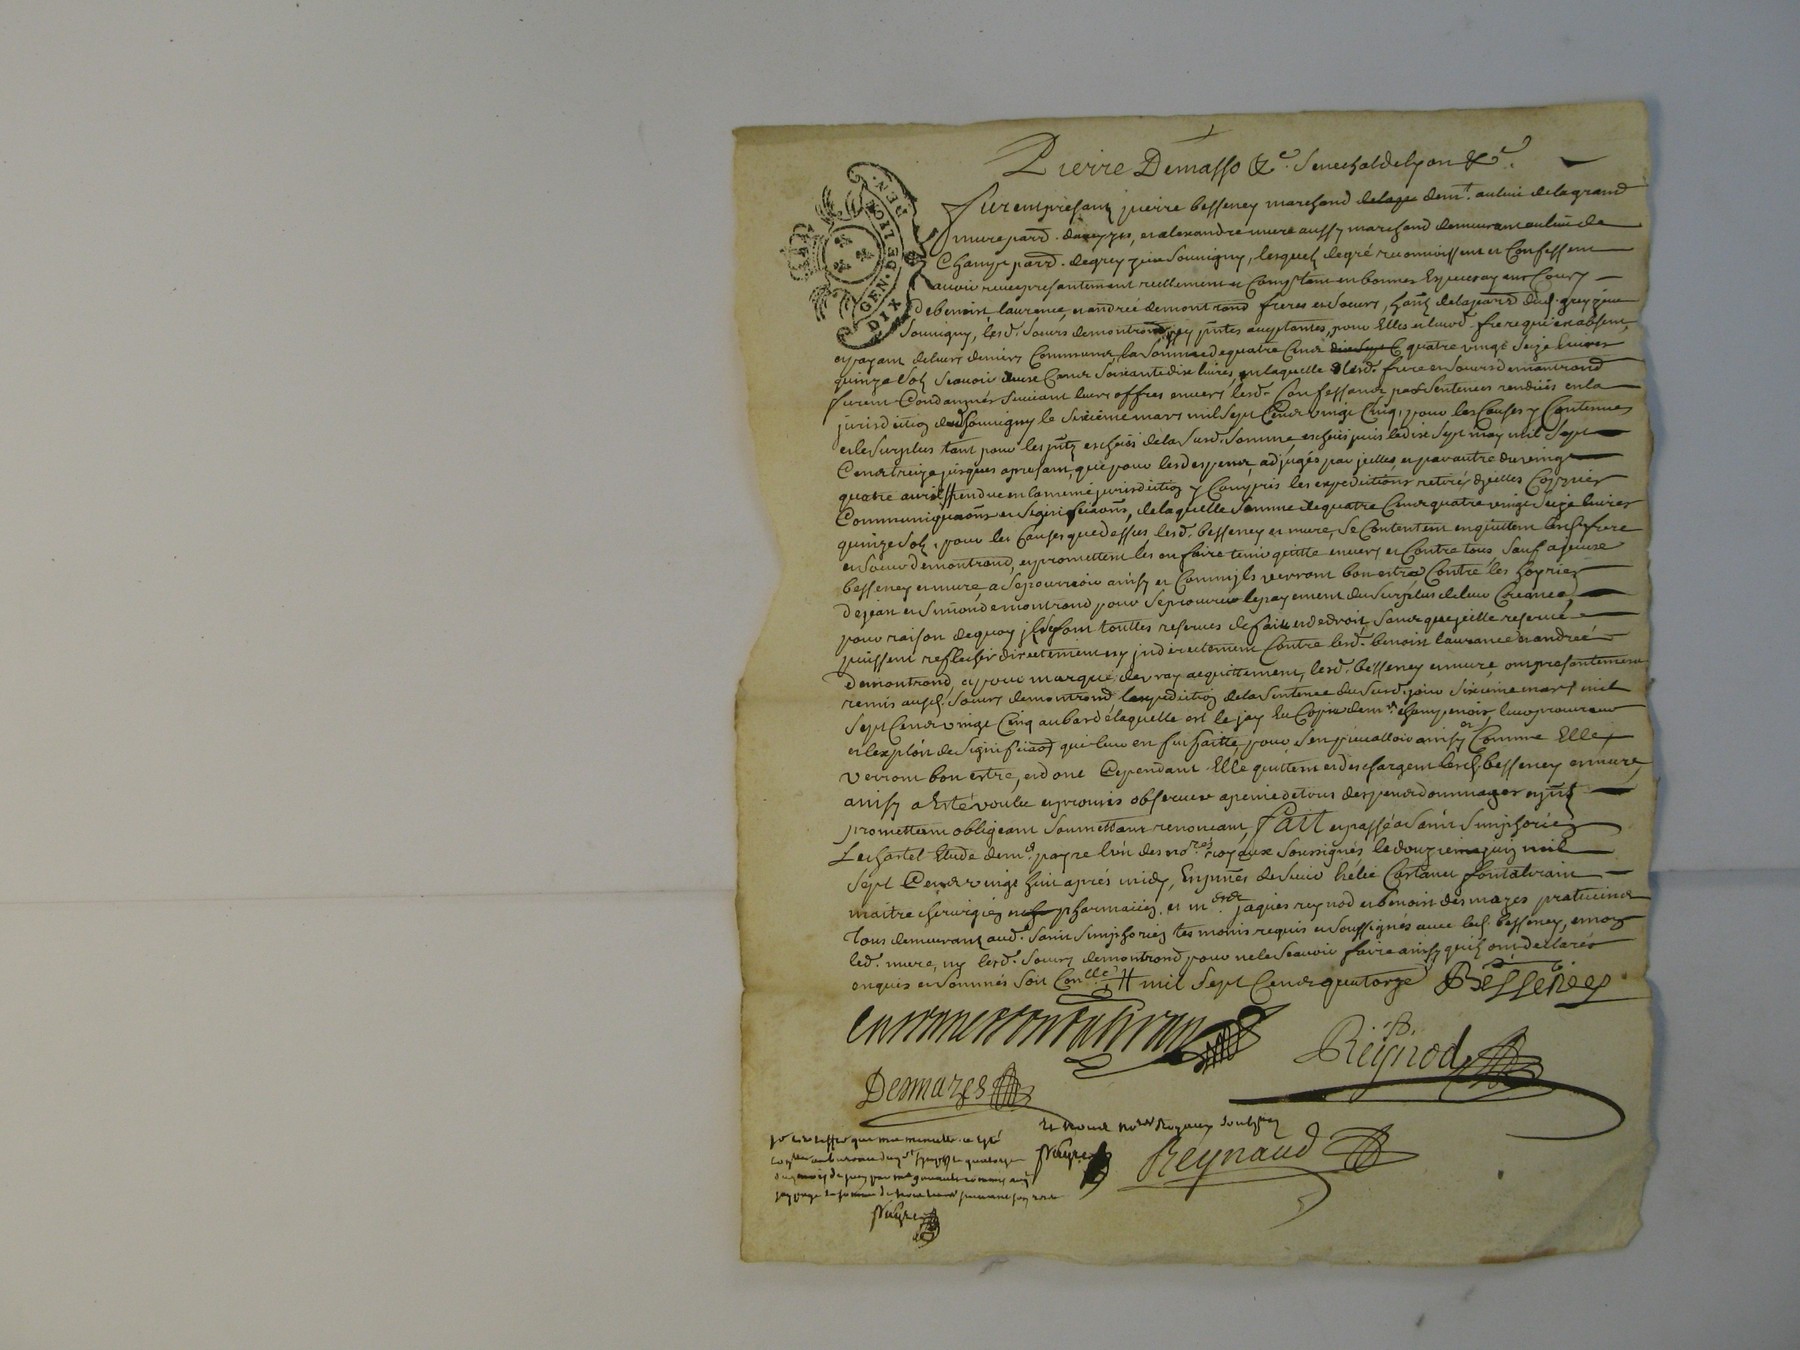 Pierre Demasso &c. Senechal de lyon &c.
GEN. DE LION
DIX DEN.
furent presans pierre besseney marchand demt. au lieu de la grand
mure parr. et alexandre mure aussy marchand demeurant au lieu de
Champ parr. de grezieu Souvigny, lesquels de gré reconnoissent et Confessent
avoir receu presentement reellement et Comptant en bonnes Especes ayant Cours
de benoist, laurence, et andrée demontrond freres et Soeurs, de la parr. dud. grezieu
Souvigny, lesd. Soeurs demontrond icy acceptantes, pour Elles et leurd. frere qui est absent,
et payant de leurs deniers Communs, la Somme de quatre Cens quatre vingt Seize livres
quinze Sols Scavoir deux Cens Soixante dix livres, en laquelle lesd. frere et Soeurs demontrond
furent Condamnés Suivant leurs offres envers lesd. Confessans, par Sentences rendües en la
jurisdiction dud. Souvigny le Sixième mars mil Sept Cens vingt Cinq, pour les Causes y Contenues
et le Surplus tant pour les de la Susd. Somme, escheus puis le dix Sept may mil Sept
Cens treize jusques a present, que pour les despens adjugés par jcelles, et par autre du vingt
quatre avril rendue en la meme jurisdiction y Compris les expeditions retirés d'jcelles Coppies
Communiquaons et Significaons, de laquelle Somme de quatre Cens quatre vingt Seize livres
quinze Sols, pour les Causes que dessus lesd. besseney et mure, Se Contentent en quittent lesd. frere
et Soeurs demontrond, et promettent les en faire tenir quitte envers et Contre tous Sauf a jceux
besseney et mure, a Se pourvoir ainsy et Comm'jls verront bon estre Contre les hoyries
de jean et Simon demontrond pour Se procurer le payement du Surplus de leur Creance,
pour raison de quoy jls font touttes reserves de fait et de droit, Sans que jcelle reserve
puissent reflechir directement ny jndirectement Contre lesd. benoist laurance et andrée
demontrond, et pour marque de vray acquittement, lesd. besseney et mure, ont presentement
remis ausd. Soeurs demontrond lexpedition de la Sentence du Susd. jour Sixieme mars mil
Sept Cens vingt Cinq au bas de laquelle est le Copie de mr. champenois, leur procureur
et lexploit de Significaon qui leur en fut faitte, pour Sen prevalloir ainsy Comme Elles
verront bon estre, et dont Cependant Elle quittent et deschargent lesd. besseney et mure,
ainsy a Esté voulu et promis observer a peine de tous despens dommages et
promettant obligeant Soumettant renonceant, fait et passé a Saint Simphorien
Le chastel Etude de me. payre l'un des nores. royaux Soussignés le douzieme juin mil
Sept Cens vingt huit après midy, En pnces de Sieur helie Castanet fontalvain
maitre chirurgien pharmacien, et mes. jaques reynod et benoist desmazes praticiens
tous demeurans aud. Saint Simphorien temoins requis et Soussignés avec led. besseney, et non
led. mure, ny lesd. Soeurs demontrond pour ne le Scavoir faire ainsy qu'ils ont declarés
enquis et Sommés Soit Conllé. # mil Sept Cens quatorze Bésséneÿ
Reÿnod
Desmazes
Et nous nores Royaux soubsignez
Payre Reÿnaud
Payre